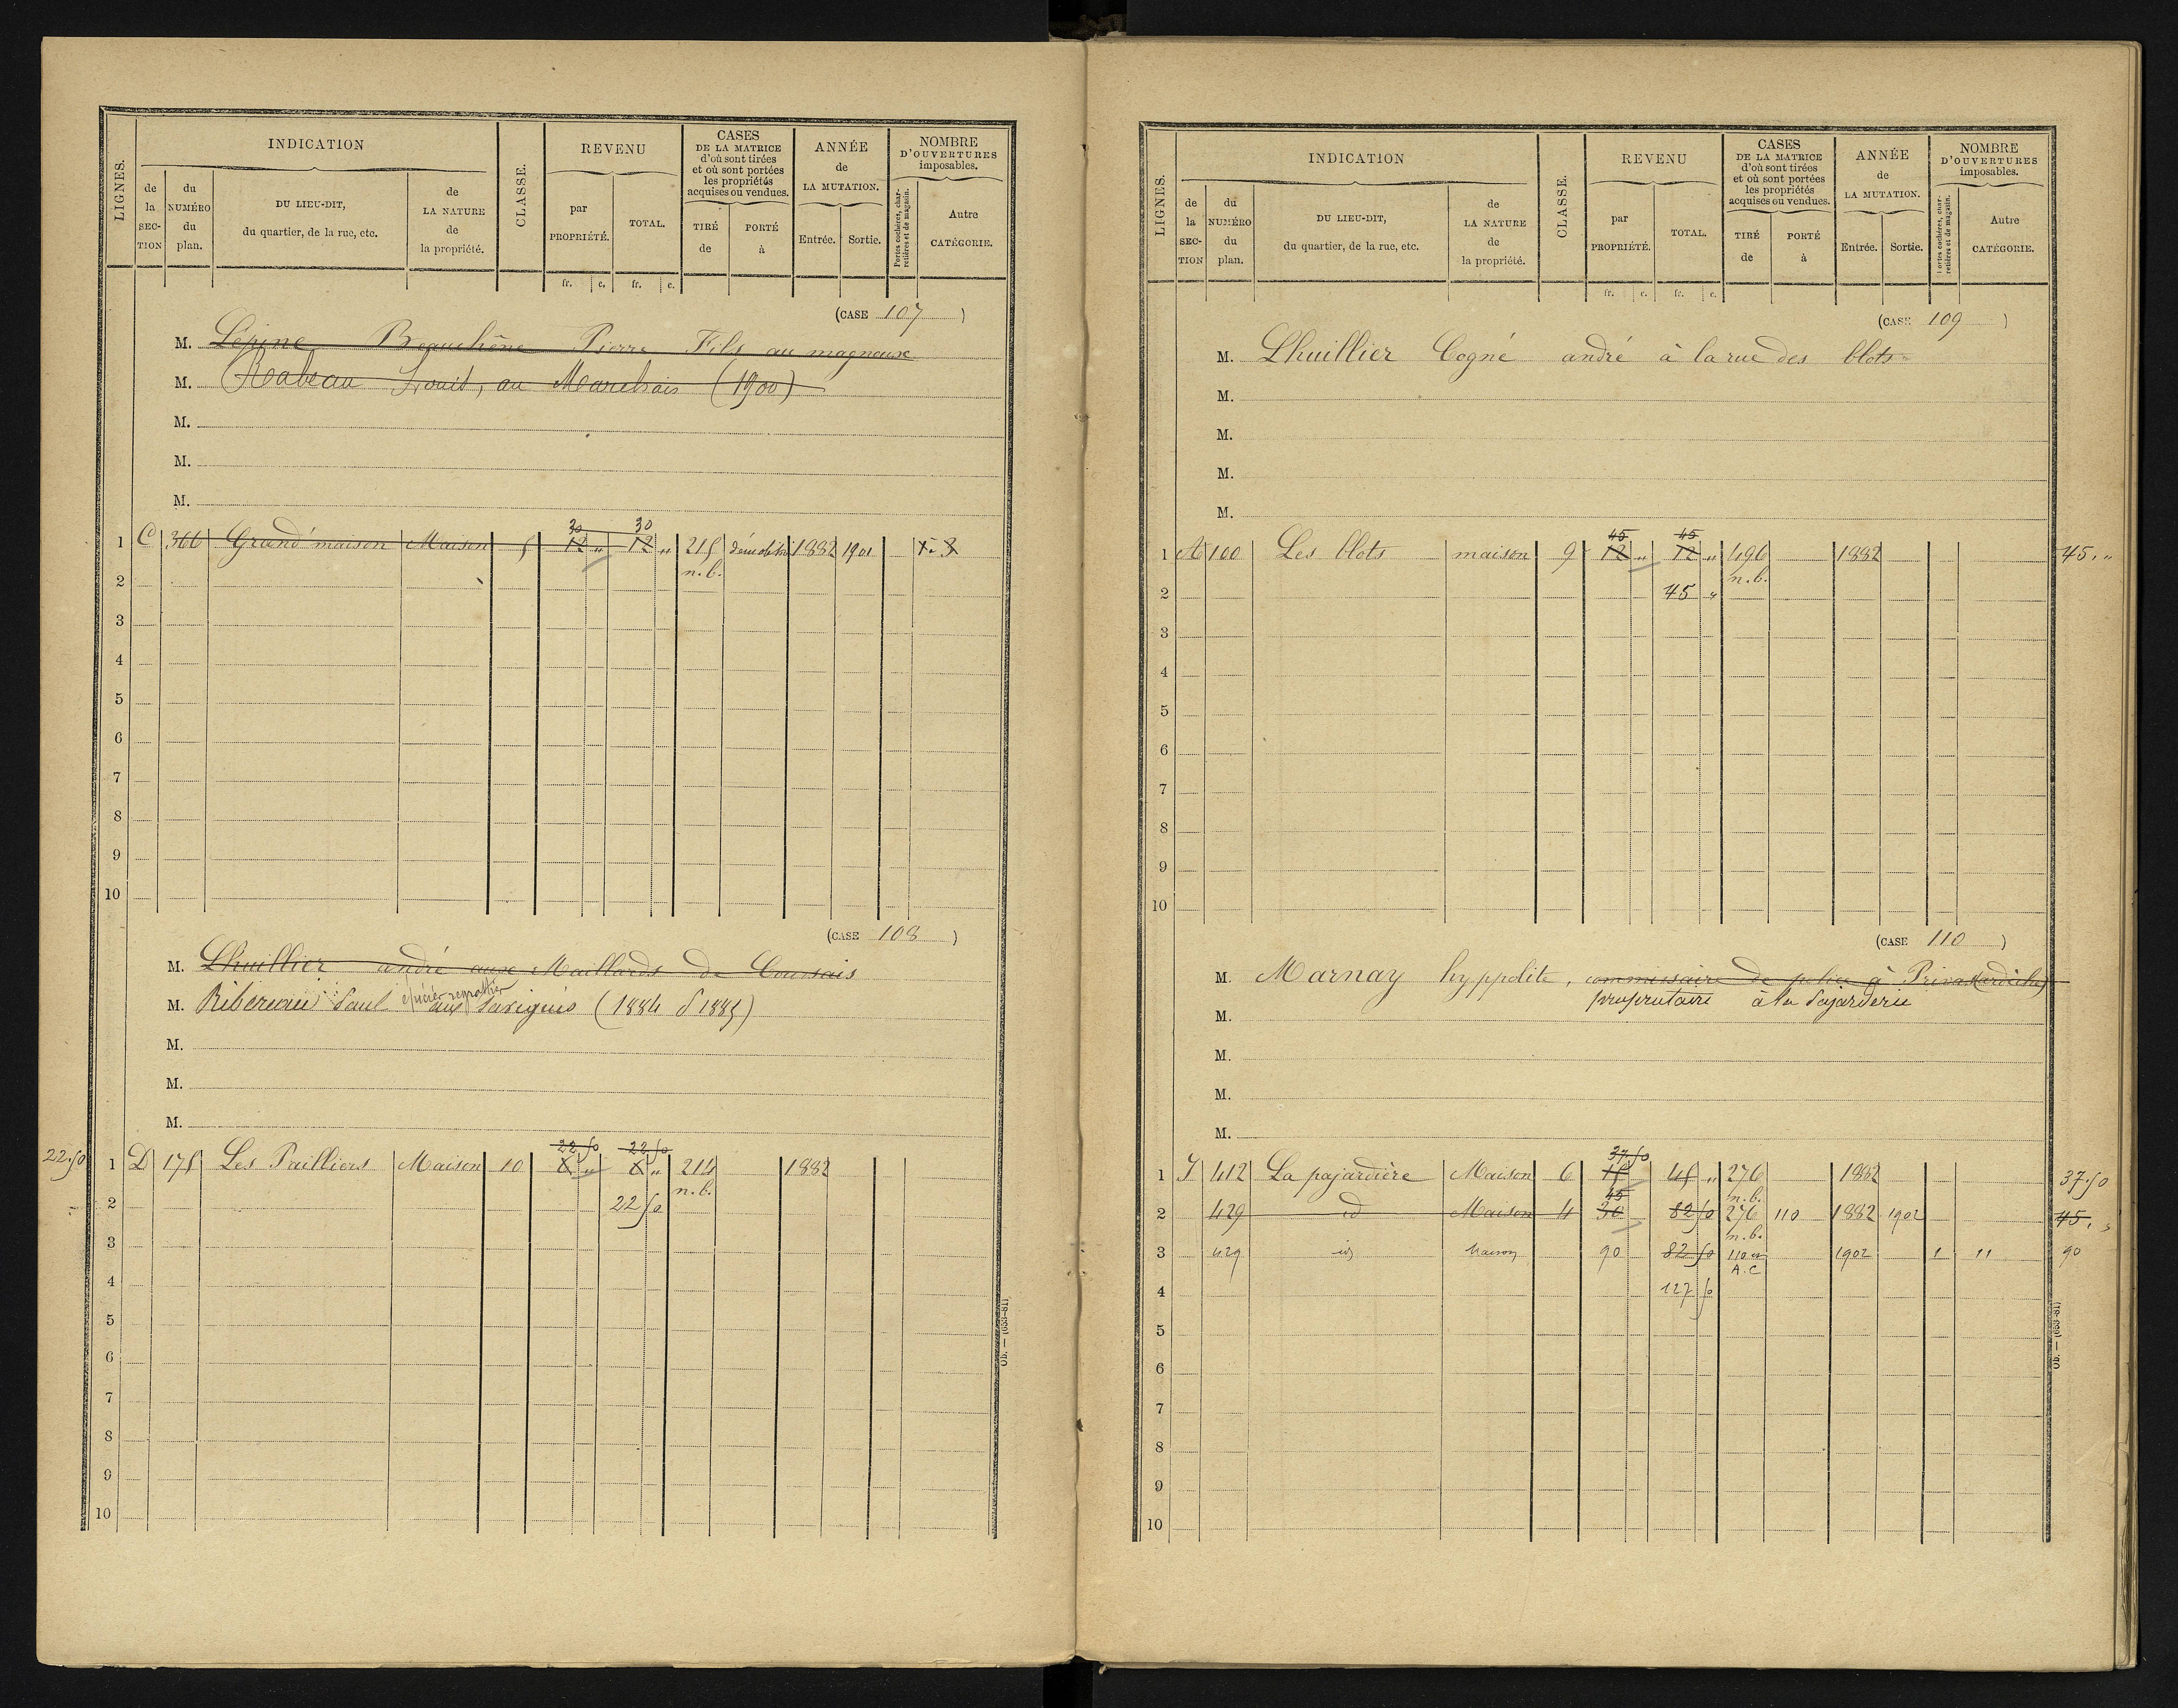 LIGNES. INDICATION CLASSE. REVENU CASES DE LA MATRICE d'où sont tirées et où sont portées les propriétés acquises ou vendues. ANNÉE de LA MUTATION. NOMBRE D'OUVERTURES imposables.
de la SECTION du NUMÉRO du plan. DU LIEU-DIT, du quartier, de la rue, etc. de LA NATURE de la propriété. par PROPRIÉTÉ. TOTAL. TIRÉ de PORTÉ à Entrée. Sortie. Portes cochères, charretières et de magasin. Autre CATÉGORIE.
fr. c. fr. c.
(CASE 107)
M. Lépine Beauchêne Pierre Fils au magneux
M. Rabeau Louis, au Marchais (1900)
M.
M.
M.
30 30
1 C 366 Grand'maison Maison 5 12 " 12 " 215 démolition 1882 1901
n.b.
2
3
4
5
6
7
8
9
10
(CASE 108)
M. Lhuillier andré aux Maillards de Coursais
épicier regrattier
M. Ribereau Paul aux Savignis (1884 P 1885)
M.
M.
M.
22.50 22.50
22.50 1 D 175 Les Pailliers Maison 10 " " 214 1882
n.b.
2 22 50
3
4
5
6
7
8
9
10
Ob. — (653-81)
LIGNES. INDICATION CLASSE. REVENU CASES DE LA MATRICE d'où sont tirées et où sont portées les propriétés acquises ou vendues. ANNÉE de LA MUTATION. NOMBRE D'OUVERTURES imposables.
de la SECTION du NUMÉRO du plan. DU LIEU-DIT, du quartier, de la rue, etc. de LA NATURE de la propriété. par PROPRIÉTÉ. TOTAL. TIRÉ de PORTÉ à Entrée. Sortie. Portes cochères, charretières et de magasin. Autre CATÉGORIE.
fr. c. fr. c.
(CASE 109)
M. Lhuillier Cogné andré à la rue des blots
M.
M.
M.
M.
45 45
1 A 100 Les blots maison 9 12 " 12 " 496 1882 45. "
n.b.
2 45 "
3
4
5
6
7
8
9
10
(CASE 110)
M. Marnay hyppolite, commissaire de police à Privas (ardèche)
propriétaire à la Pajarderie
M.
M.
M.
M.
37.50
1 I 412 La pajardière Maison 6 15 45 " 276 1882 37.50
45 n.b.
2 429 id Maison 4 30 82 50 276 110 1882 1902 45. "
n.b.
3 429 id Maison 90 82 50 110 1902 1 11 90
A.C
4 127 50
5
6
7
8
9
10
Ob. — (653-81)